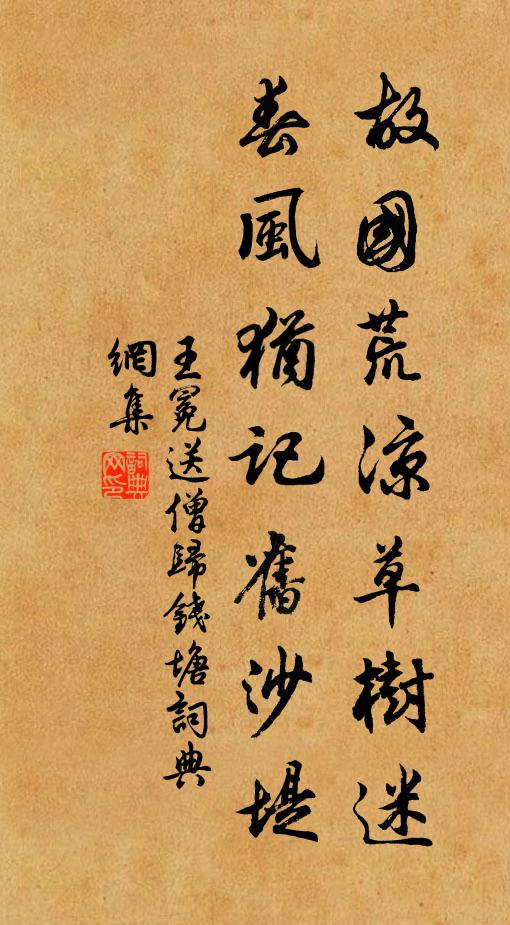 故國荒涼草樹迷
春風猶記舊沙堤
王冕送僧歸錢塘詞典
網集
詞典
网印